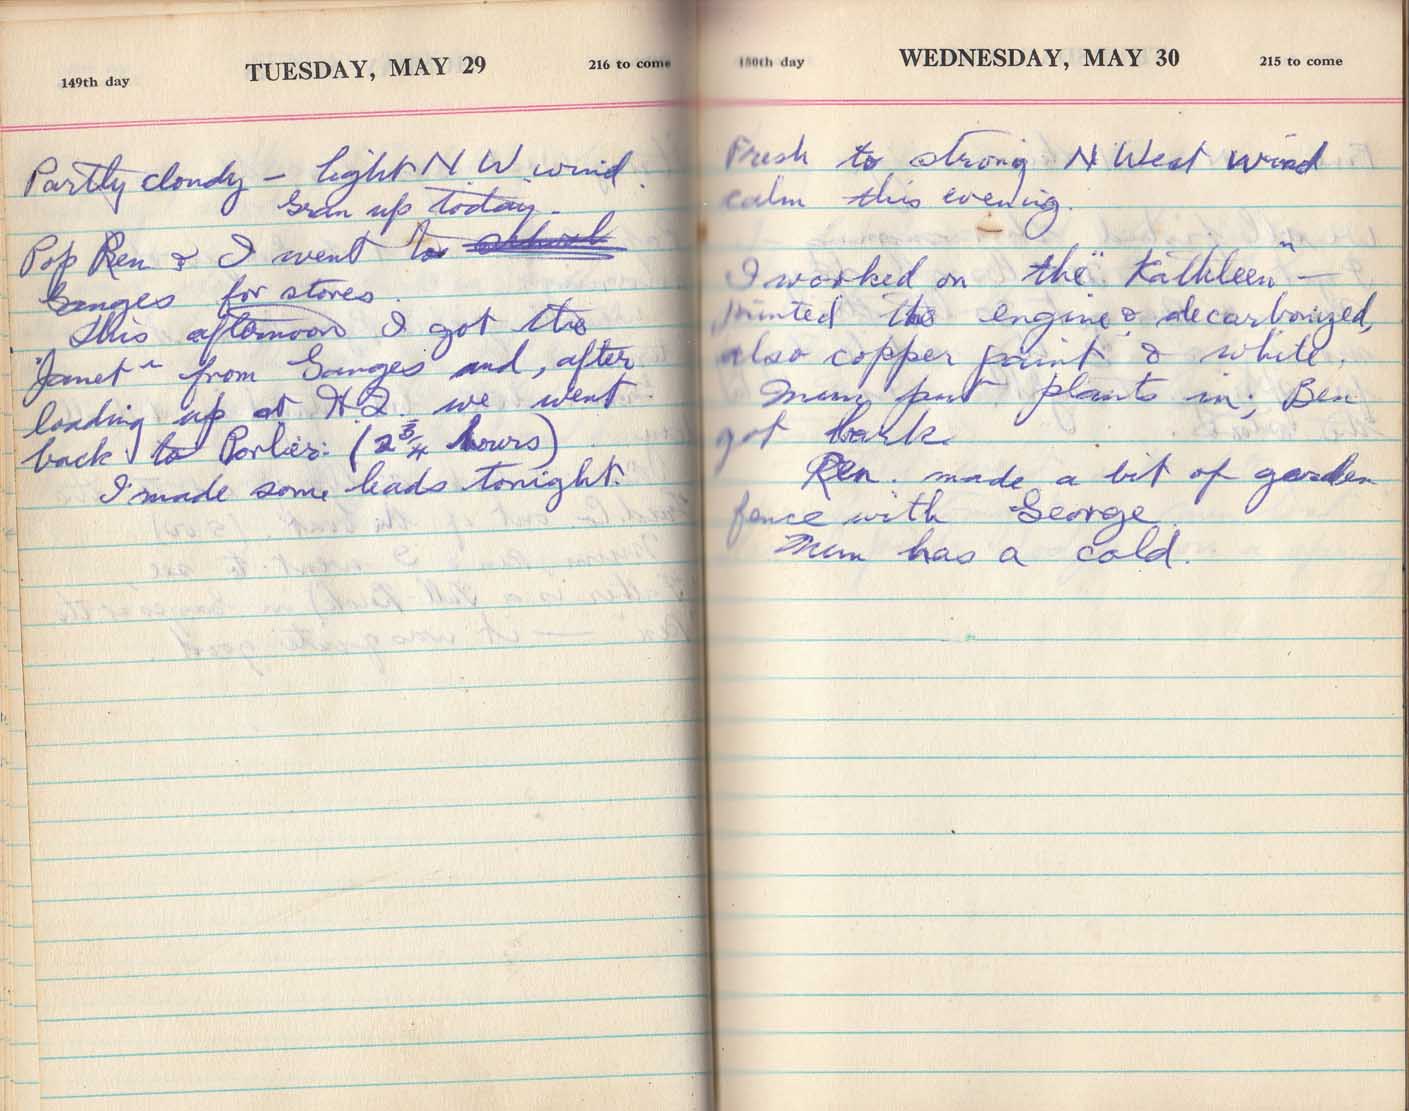 149th day TUESDAY, MAY 29 216 to come
Partly cloudy – light N W wind.
Gran up today.
Pop Ren & I went to school
Ganges for stores.
This afternoon I got the
"Janet" from Ganges and, after
loading up at H.Q. we went
back to Porlier. (2 3/4 hours)
I made some leads tonight.
150th day WEDNESDAY, MAY 30 215 to come
Fresh to strong N West wind
calm this evening.
I worked on the "Kathleen" –
painted the engine & decarbonized,
also copper paint & white.
Mum put plants in; Ben
got bark.
Ren. made a bit of garden
fence with George.
Mum has a cold.